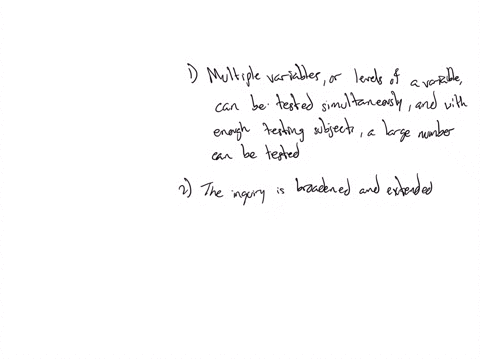 1) Multiple variables, or levels of a variable,
can be tested simultaneously, and with
enough testing subjects, a large number
can be tested
2) The inquiry is broadened and extended